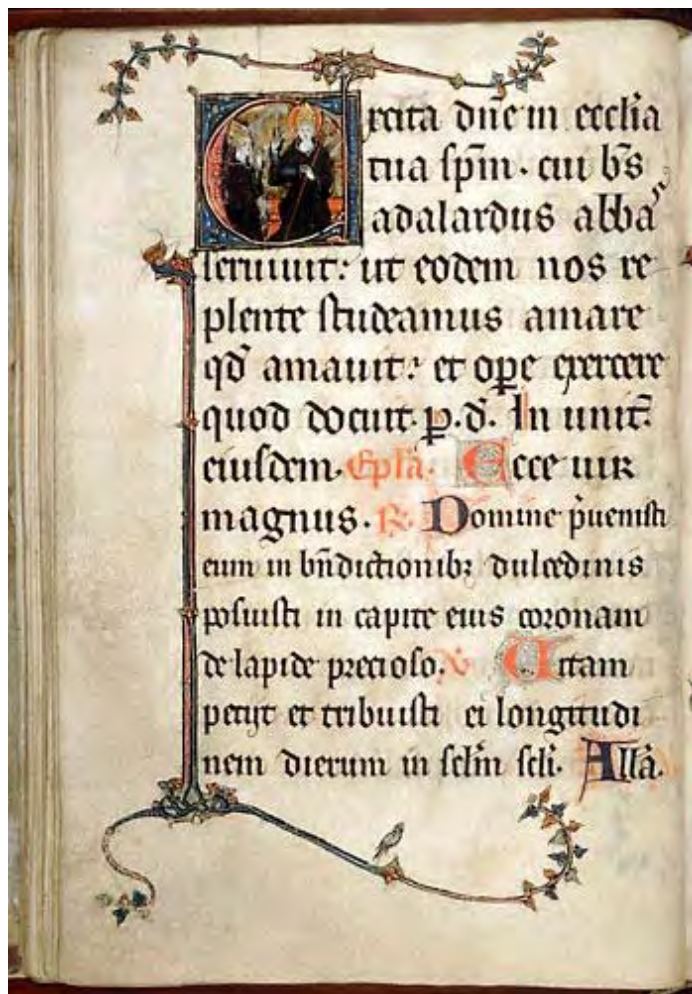 Excita dñe in eccl̃ia
tua sp̃m. cui b̃s
adalardus abba
seruiuit: ut eodem nos re
plente studeamus amare
qd̃ amauit: et op̲e exercere
quod docuit. p̲. d̃. In unit̃.
eiusdem. Ep̃la. Ecce uir
magnus. R̃. Domine p̃uenisti
eum in bñdictionibꝫ dulcedinis
posuisti in capite eius coronam
de lapide precioso. Ṽ. Uitam
petijt et tribuisti ei longitudi
nem dierum in sclm̃ scli̇. Allã.